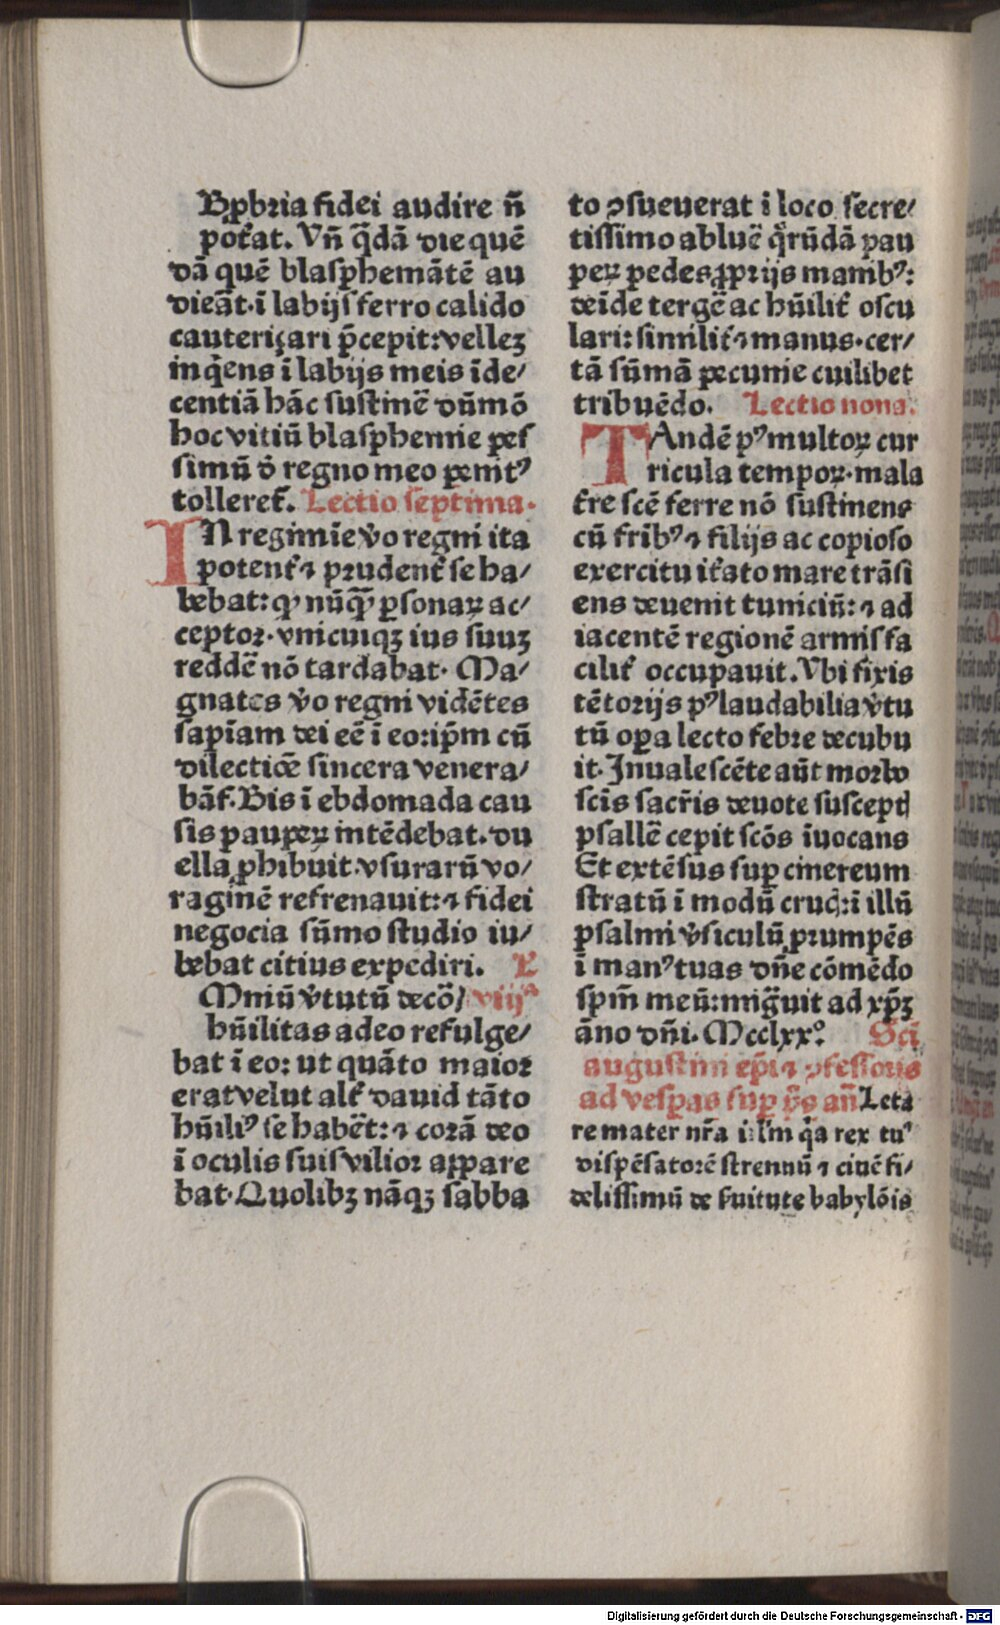 Bꝓbꝛia fidei audire n̄
pot̄at. Vn̄ q̄dā die quē
dā quē blasphemātē au
dieāt·ī labijs ferro calido
cauteriçari p̄cepit:vellez
inq̇ens ī labijs meis īde/
centiā hāc sustinē dūmō
hoc vitiū blasphemie pes
simū ð regno meo penitꝰ
tolleret̄. Lectio septima·
IN regimīe v̊o regni ita
potent̄ ⁊ pꝛudent̄ se ha/
bebat: ꝙ nūq̄ꝫ ꝑsonaꝝ ac/
ceptoꝛ·vnicuiqꝫ ius suuꝫ
reddē nō tardabat· Ma/
gnates v̊o regni vidētes
sapīam dei eē ī eo:ip̄m cū
dilectiōe sincera venera/
bāt̄. Bis ī ebdomada cau
sis paupeꝝ intēdebat. du
ella ꝓhibuit·vsurarū vo/
raginē refrenauit:⁊ fidei
negocia sūmo studio iu/
bebat citius expediri. L
Mniū v̊tutū decoꝛ viijᵃ
hūilitas adeo refulge/
bat ī eo: ut quāto maioꝛ
erat velut alt̄ dauid tāto
hūiliꝰ se habēt:⁊ coꝛā deo
ī oculis suis vilioꝛ appare
bat· Quolibꝫ nāqꝫ sabba
to ꝯsueuerat ī loco secre/
tissimo abluē q̄rūdā pau
peꝝ pedes ꝓpꝛijs manibꝰ:
deīde tergē ac hūilit̄ oscu
lari: similit̄ ⁊ manus·cer/
tā sūmā pecunie cuilibet
tribuēdo. Lectio nona.
TAndē pꝰ multoꝝ cur
ricula tempoꝝ·mala
t̄re scē ferre nō sustinens
cū fribꝰ ⁊ filijs ac copioso
exercitu it̄ato mare trāsi
ens deuenit tuniciū: ⁊ ad
iacentē regionē armis fa
cilit̄ occupauit. Vbi fixis
tētoꝛijs pꝰ laudabilia v̊tu
tū oꝑa lecto febꝛe decubu
it. Jnualescēte aūt moꝛbo
scīs sacr̄is deuote suscepꝭ
psallē cepit scōs īuocans
Et extēsus suꝑ cinereum
stratū ī modū cruc̄:ī illū
psalmi v̊siculū pꝛumpēs
ī manꝰ tuas dn̄e cōmēdo
spm̄ meū:migr̄uit ad xp̄ꝫ
āno dn̄i. Mcclxx°. Sci
augustini ep̄i ⁊ ꝯfessoris
ad vesꝑas suꝑ p̄s an̄ Leta
re mater nr̄a ihr̄lm q̄a rex tuꝰ
dispēsatoꝛē strennū ⁊ ciuē fi/
delissimū de s̄uitute babylōis